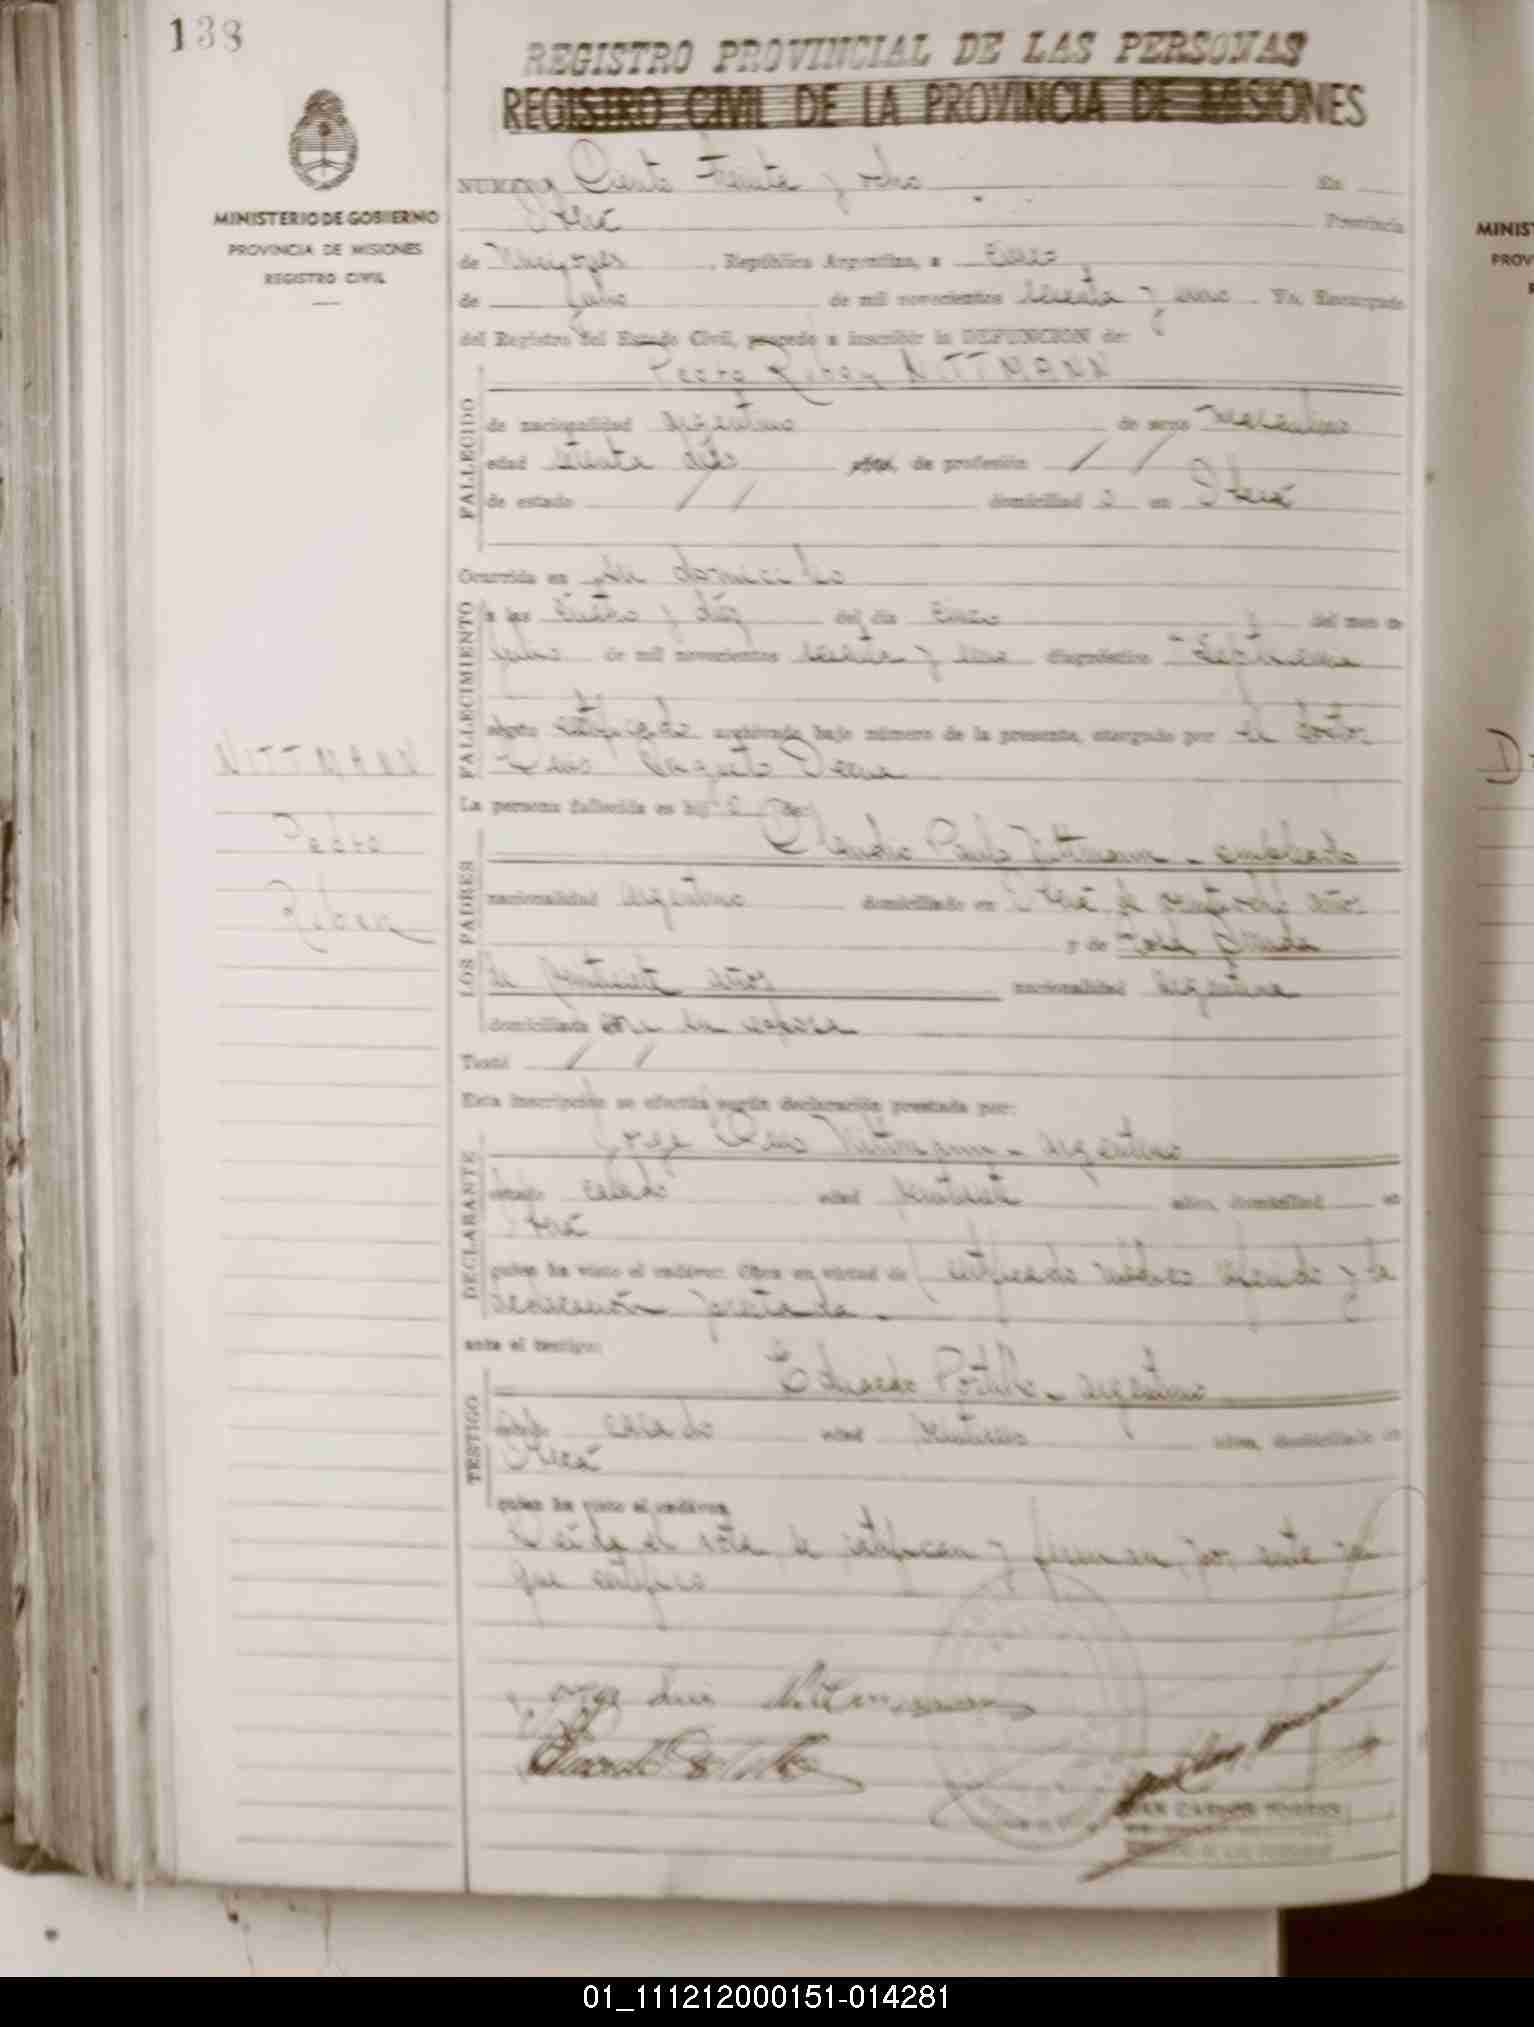 138
REGISTRO PROVINCIAL DE LAS PERSONAS
REGISTRO CIVIL DE LA PROVINCIA DE MISIONES
MINISTERIO DE GOBIERNO
PROVINCIA DE MISIONES
REGISTRO CIVIL
NUMERO Ciento treinta y ocho En
Oberá Provincia
de Misiones, República Argentina, a cinco
de Julio de mil novecientos setenta y uno. Yo, Encargado
del Registro del Estado Civil, procedo a inscribir la DEFUNCION de:
Pedro Ruben NITTMANN
FALLECIDO
de nacionalidad argentino de sexo masculino
edad treinta días de profesión / /
de estado / / domiciliad o en Oberá
Ocurrida en su domicilio
FALLECIMIENTO
a las cuatro y diez del día cinco del mes de
julio de mil novecientos setenta y uno diagnóstico
según certificado archivado bajo número de la presente, otorgado por el doctor
Luis Augusto
NITTMANN
Pedro
Ruben
La persona fallecida es hij o de:
LOS PADRES
Claudio Paulo Nittmann - empleado
nacionalidad argentino domiciliado en Oberá de años
y de Rosa
de veintisiete años nacionalidad argentina
domiciliada con su esposo
Testó / /
Esta inscripción se efectúa según declaración prestada por:
DECLARANTE
Jorge Luis Nittmann - argentino
casado edad veintisiete años, domiciliad en
Oberá
quien ha visto el cadáver. Obra en virtud de certificado médico referido y la
declaración prestada.
ante el testigo:
TESTIGO
Eduardo Portillo - argentino
estado casado edad años, domiciliado en
Oberá
quien ha visto el cadáver
Leída el acta, la ratifican y firman, por ante mí
que certifico
Jorge Luis Nittmann
Eduardo Portillo
JUAN CARLOS
MINIS
PROV
01_111212000151-014281